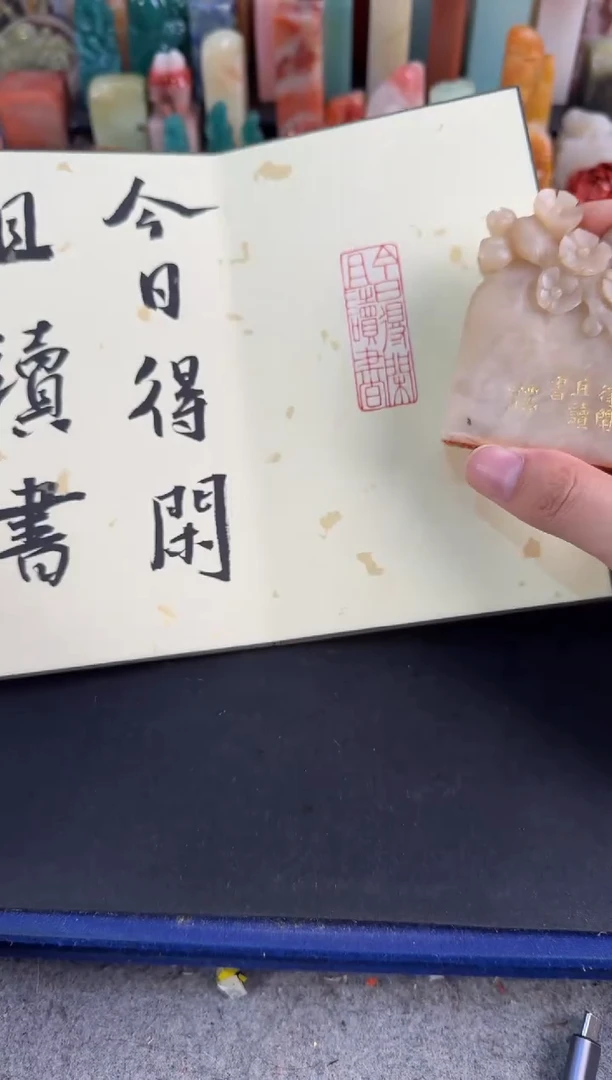 今日得閑
且讀書
今日得閑
且讀書
得閑
且讀
書